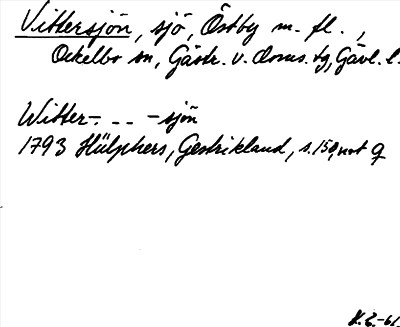 Vittersjön, sjö, Östby m. fl.,
Ockelbo sn, Gästr. v. Doms. tg, Gävl. l.
Witter- - - -sjön
1793 Hülphers, Gestrikland, s. 150, not q